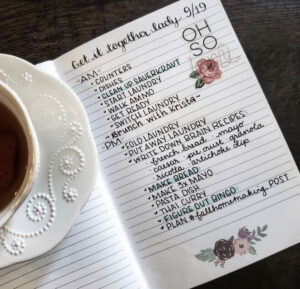 Get it together, lady 9/19
OH
SO
"AM"
COUNTERS
DISHES
CLEAN UP SAUERKRAUT
START LAUNDRY
WALK AMMO
GET READY
SWITCH LAUNDRY
"Brunch with Krista"
"PM"
FOLD LAUNDRY
PUT AWAY LAUNDRY
WRITE DOWN BRAIN RECIPES:
french bread · mayo
caesar · pie crust · granola
ricotta · artichoke dip
MAKE BREAD
MAKE 3X MAYO
PASTA DISH
THAI CURRY
FIGURE OUT BINGO
PLAN #fallhomemaking POST